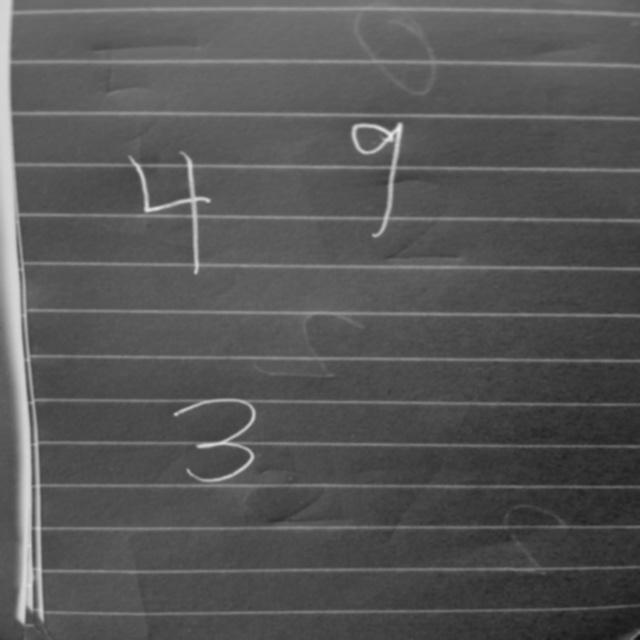 4 9
3